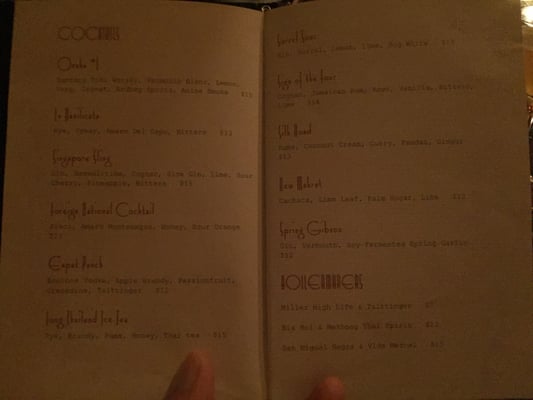 COCKTAILS
Osaka #1
Suntory Toki Whisky, Lemon,
Ardbeg Spritz, Anise Smoke $15
La Basilicata
Rye, Cynar, Amaro Del Capo, Bitters $13
Singapore Sling
Gin, Benedictine, Cognac, Sloe Gin, Lime, Sour
Cherry, Pineapple, Bitters $15
Foreign National Cocktail
Pisco, Amaro Montenegro, Honey, Sour Orange
Capet Punch
Vodka, Apple Brandy, Passionfruit,
Grenadine, Taittinger $12
Long Thailand Ice Tea
Rye, Brandy, Rums, Honey, Thai tea $15
Sorrel Sour
Gin, Sorrel, Lemon, Lime, Egg White $13
Sign of the Four
Cognac, Jamaican Rum, Vanilla, Bitters,
Lime $14
Silk Road
Rums, Coconut Cream, Curry, Pandan, Ginger
$13
Cachaca, Lime Leaf, Palm Sugar, Lime $12
Spring Gibson
Gin, Vermouth, Soy-Fermented Spring Garlic
$12
BOILERMAKERS
Miller High Life &
& Mekhong Thai Spirit $12
San Miguel Negra & Vida Mezcal $13